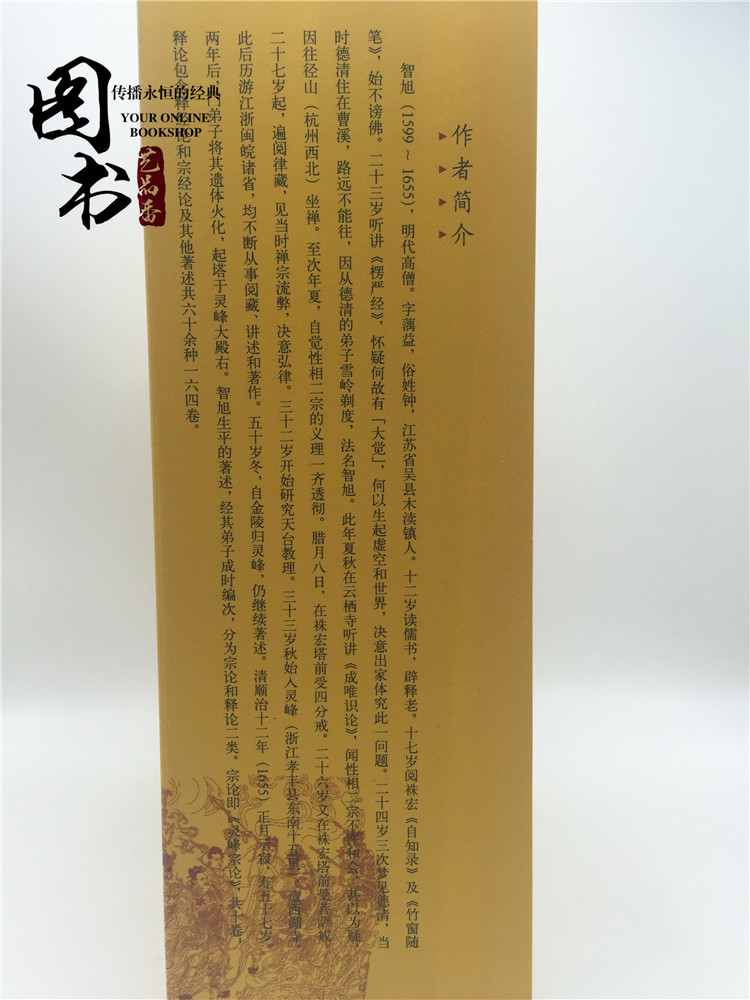 图书
传播永恒的经典
YOUR ONLINE
BOOKSHOP
艺品香
作者简介
智旭（1599～1655），明代高僧。字蕅益，俗姓钟，江苏省吴县木渎镇人。十二岁读儒书，辟释老。十七岁阅袾宏《自知录》及《竹窗随
笔》，始不谤佛。二十三岁听讲《楞严经》，怀疑何故有「大觉」，何以生起虚空和世界，决意出家体究此一问题。二十四岁三次梦见德清，当
时德清住在曹溪，路远不能往，因从德清的弟子雪岭剃度，法名智旭。此年夏秋在云栖寺听讲《成唯识论》，闻性相二宗不许和会，甚以为疑，
因往径山（杭州西北）坐禅。至次年夏，自觉性相二宗的义理一齐透彻。腊月八日，在袾宏塔前受四分戒。二十六岁又在袾宏塔前受菩萨戒。
二十七岁起，遍阅律藏，见当时禅宗流弊，决意弘律。三十二岁开始研究天台教理。三十三岁秋始入灵峰（浙江孝丰县东南十五里），造西湖寺
此后历游江浙闽皖诸省，均不断从事阅藏、讲述和著作。五十岁冬，自金陵归灵峰，仍继续著述。清顺治十二年（1655）正月示寂，寿五十七岁
两年后，门弟子将其遗体火化，起塔于灵峰大殿右。智旭生平的著述，经其弟子成时编次，分为宗论和释论二类。宗论即《灵峰宗论》，共十卷，
释论包含释经论和宗经论及其他著述共六十余种一六四卷。